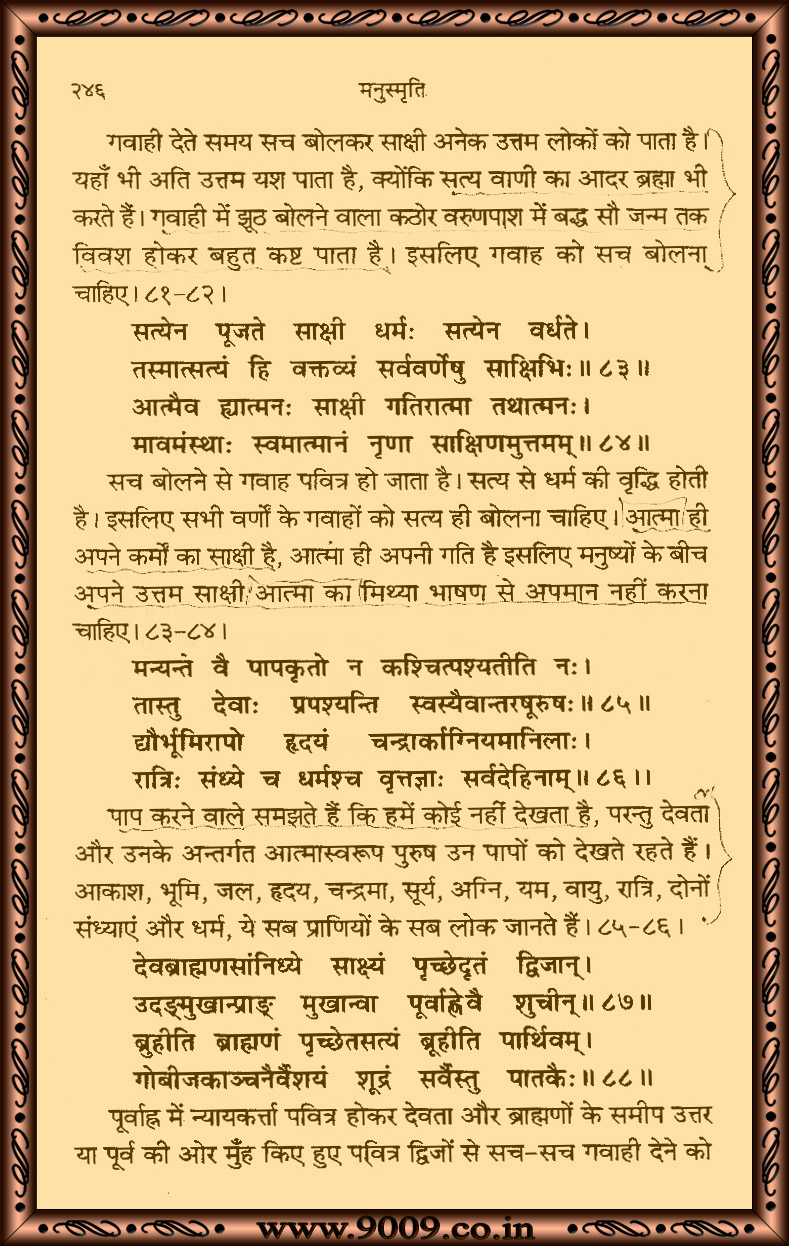 २४६ मनुस्मृति
गवाही देते समय सच बोलकर साक्षी अनेक उत्तम लोकों को पाता है।
यहाँ भी अति उत्तम यश पाता है, क्योंकि सत्य वाणी का आदर ब्रह्मा भी
करते हैं। गवाही में झूठ बोलने वाला कठोर वरुणपाश में बद्ध सौ जन्म तक
विवश होकर बहुत कष्ट पाता है। इसलिए गवाह को सच बोलना
चाहिए। ८१-८२।
सत्येन पूजते साक्षी धर्मः सत्येन वर्धते।
तस्मात्सत्यं हि वक्तव्यं सर्ववर्णेषु साक्षिभिः॥ ८३॥
आत्मैव ह्यात्मनः साक्षी गतिरात्मा तथात्मनः।
मावमंस्थाः स्वमात्मानं नृणा साक्षिणमुत्तमम्॥ ८४॥
सच बोलने से गवाह पवित्र हो जाता है। सत्य से धर्म की वृद्धि होती
है। इसलिए सभी वर्णों के गवाहों को सत्य ही बोलना चाहिए। आत्मा ही
अपने कर्मों का साक्षी है, आत्मा ही अपनी गति है इसलिए मनुष्यों के बीच
अपने उत्तम साक्षी आत्मा का मिथ्या भाषण से अपमान नहीं करना
चाहिए। ८३-८४।
मन्यन्ते वै पापकृतो न कश्चित्पश्यतीति नः।
तास्तु देवाः प्रपश्यन्ति स्वस्यैवान्तरषूरुषः॥ ८५॥
द्यौर्भूमिरापो हृदयं चन्द्रार्काग्नियमानिलाः।
रात्रिः संध्ये च धर्मश्च वृत्तज्ञाः सर्वदेहिनाम्॥ ८६।।
पाप करने वाले समझते हैं कि हमें कोई नहीं देखता है, परन्तु देवता
और उनके अन्तर्गत आत्मास्वरूप पुरुष उन पापों को देखते रहते हैं।
आकाश, भूमि, जल, हृदय, चन्द्रमा, सूर्य, अग्नि, यम, वायु, रात्रि, दोनों
संध्याएं और धर्म, ये सब प्राणियों के सब लोक जानते हैं। ८५-८६।
देवब्राह्मणसांनिध्ये साक्ष्यं पृच्छेदृतं द्विजान्।
उदङ्मुखान्प्राङ् मुखान्वा पूर्वाह्णेवै शुचीन्॥ ८७॥
ब्रुहीति ब्राह्मणं पृच्छेतसत्यं ब्रूहीति पार्थिवम्।
गोबीजकाञ्चनैर्वैशयं शूद्रं सर्वैस्तु पातकैः॥ ८८॥
पूर्वाह्न में न्यायकर्त्ता पवित्र होकर देवता और ब्राह्मणों के समीप उत्तर
या पूर्व की ओर मुँह किए हुए पवित्र द्विजों से सच-सच गवाही देने को
www.9009.co.in